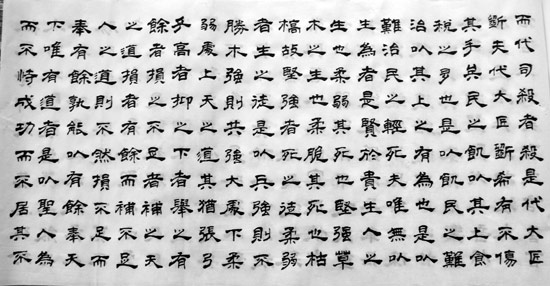 而代司殺者殺是代大匠
斲夫代大匠斲希有不傷
其手矣民之飢以其上食
税之多也是以飢民之難
治以其上之有為也是以
難治民之輕死夫唯無以
生為者是賢於貴生人之
生也柔弱其死也堅強草
木之生也柔脆其死也枯
槁故堅強者死之徒柔弱
者生之徒是以兵強則不
勝木強則共強大處下柔
弱處上天之道其猶張弓
乎高者抑之下者舉之有
餘者損之不足者補之天
之道損有餘而補不足
人之道則不然損不足而
奉有餘孰能以有餘奉天
下唯有道者是以聖人為
而不恃成功而不居其不